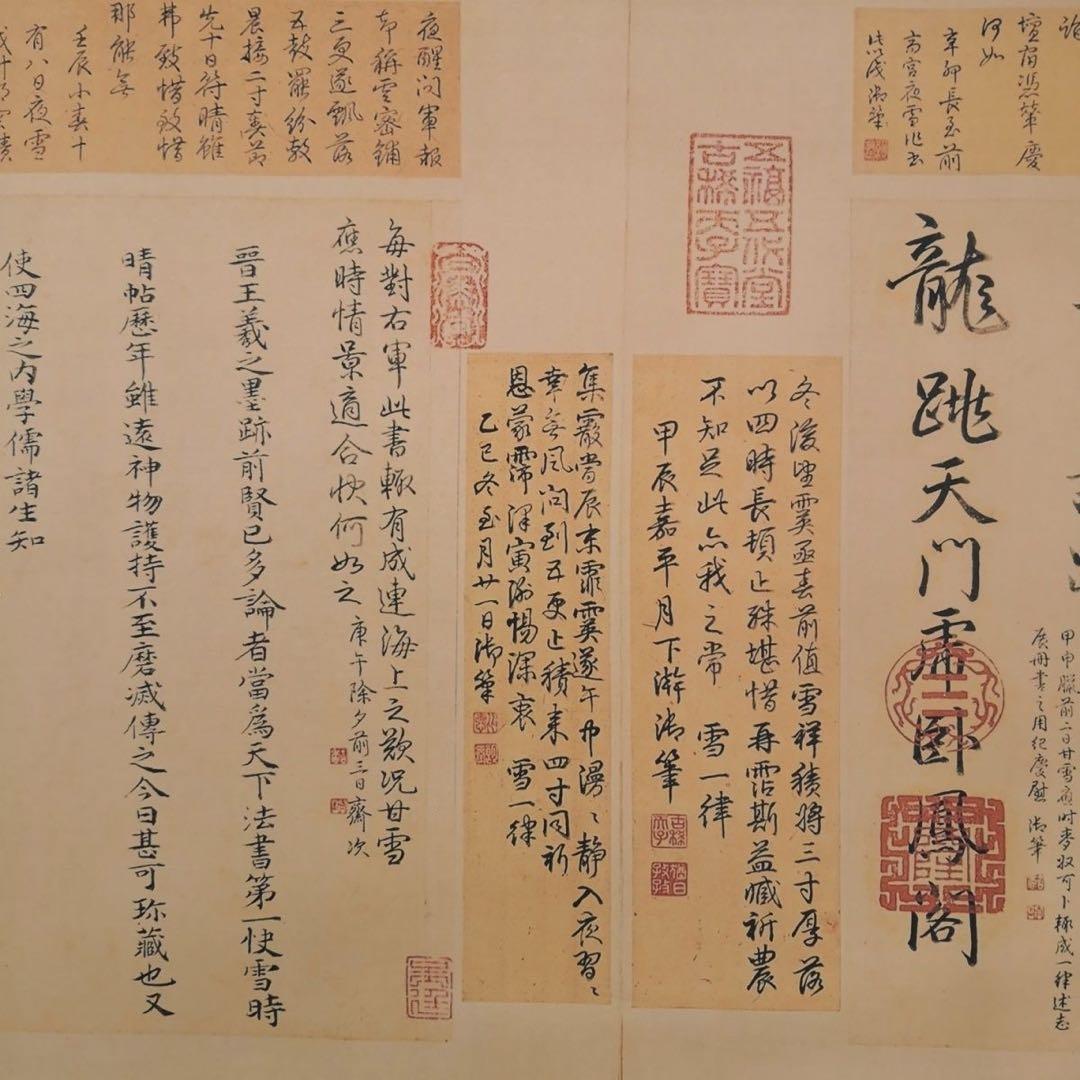 龍跳天門虎臥鳳閣
甲申臘前二日甘雪應時麥收可卜輒成一律述志
展冊書之用紀慶慰 御筆
壇宿憑輦慶
何如
辛卯長至前
齋宮夜雪作出
以成 御筆
五福五代堂古稀天子寶
冬後望霙亟春前值雪祥積將三寸厚落
以四時長頓止殊堪惜再霑斯益臧祈農
不知足此亦我之常 雪一律
甲辰嘉平月下澣御筆
古稀天子
猶日孜孜
集霰嘗辰末霏霙遂午中漫〻靜入夜習〻
幸無風問到五更止積來四寸同祈
恩蒙霈澤寅謝惕深衷 雪一律
乙巳冬至月廿一日御筆
夜醒問軍報
却稱雲密鋪
三更遂飄落
五鼓罷紛敷
晨接二寸奏節
先十日符晴雖
弗致惜致惜
那能無
壬辰小春十
有八日夜雪
每對右軍此書輒有成連海上之歎況甘雪
應時情景適合快何如之 庚午除夕前三日齋次
晉王羲之墨跡前賢已多論者當為天下法書第一快雪時
晴帖歷年雖遠神物護持不至磨滅傳之今日甚可珎藏也又
使四海之內學儒諸生知